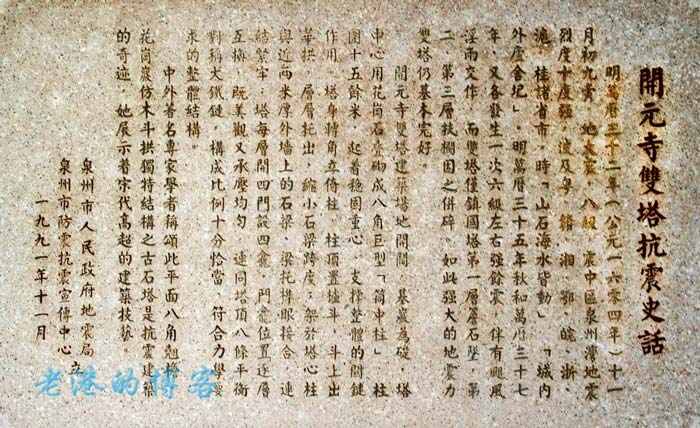 開元寺雙塔抗震史話
明萬曆三十二年（公元一六零四年）十一
月初九夜，地大震，八級，震中區泉州灣地震
烈度十度強，波及粵、贛、湘、鄂、皖、浙、
滬、桂諸省市，時「山石海水皆動」，「城内
外廬舍圮」。明萬曆三十五年秋和萬曆三十七
年，又各發生一次六級左右强餘震，伴有颱風
淫雨交作，而雙塔僅鎮國塔第一層蓋石墜，第
二、第三層扶欄因之併碎。如此强大的地震力
雙塔仍基本完好。
開元寺雙塔建築場地開闊，基嚴為礎，塔
中心用花崗石疊砌成八角巨型「筒中柱」，柱
圍十五餘米，起着穩固重心，支撐整體的關鍵
作用，塔身轉角立倚柱，柱頂置櫨斗，斗上出
華拱，層層托出，縮小石梁跨度；架於塔心柱
與近兩米厚外墻上的石梁，梁托榫眼接合，連
結緊牢；塔每層開四門設四龕，門龕位置逐層
互換，既美觀又承壓均匀，連同塔頂八條平衡
對稱大鐵鏈，構成比例十分恰當，符合力學要
求的整體結構。
中外著名專家學者稱頌此平面八角翹檐
花崗巖仿木斗拱獨特結構之古石塔是抗震建築
的奇迹，她展示着宋代高超的建築技藝。
泉州市人民政府地震局
泉州市防震抗震宣傳中心 立
一九九一年十一月
老港的博客